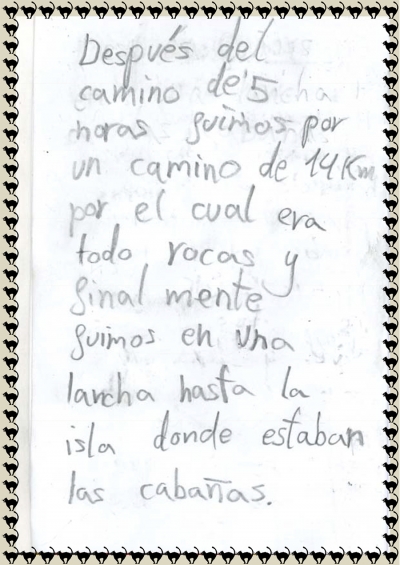 Después del
camino de 5
horas fuimos por
un camino de 14 Km
por el cual era
todo rocas y
final mente
fuimos en una
lancha hasta la
isla donde estaban
las cabañas.